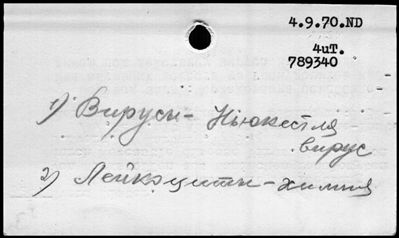 4.9.70.ND
4иТ.
789340
1) Вируси - Нюкестля
вирус
2) Лейкоцити - химия